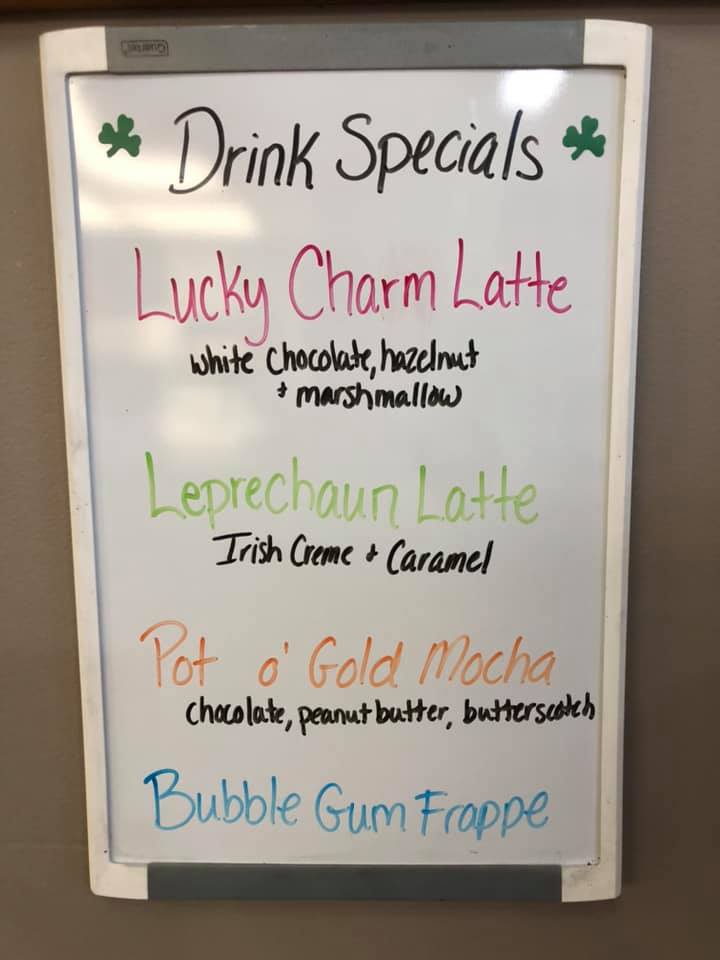 Quartet
Drink Specials
Lucky Charm Latte
white chocolate, hazelnut
+ marshmallow
Leprechaun Latte
Irish Creme + Caramel
Pot o' Gold Mocha
chocolate, peanut butter, butterscotch
Bubble Gum Frappe